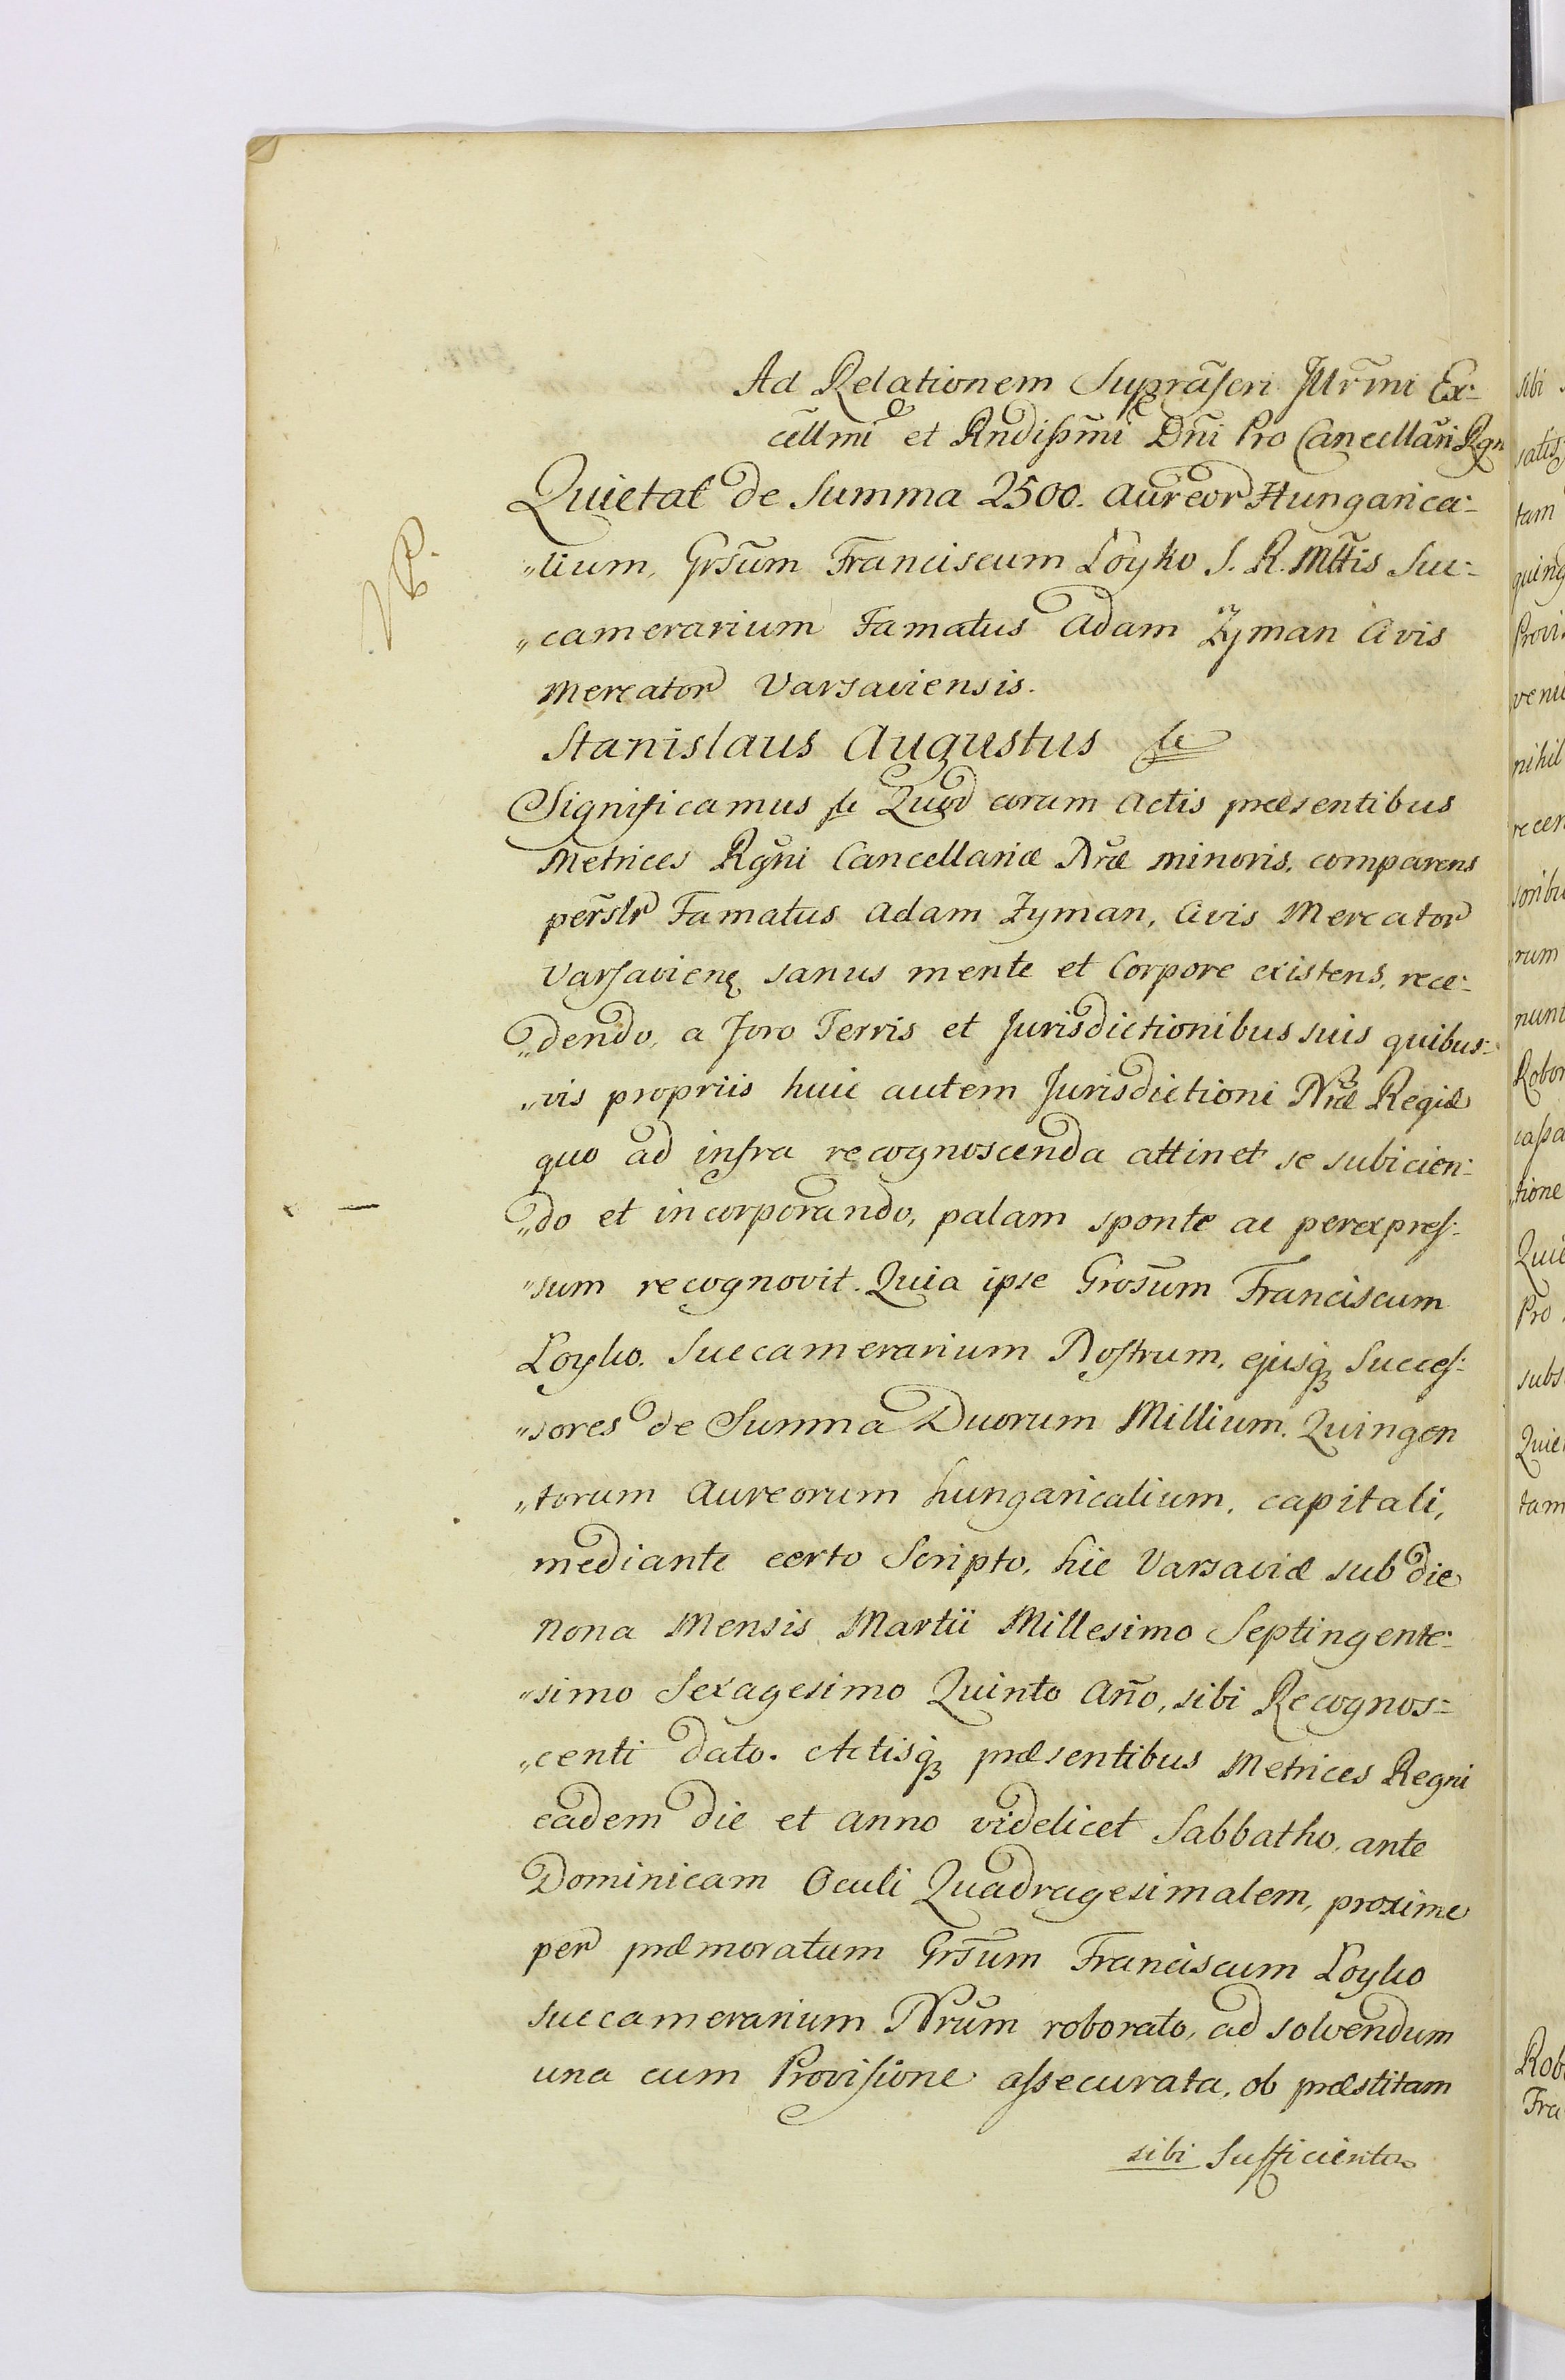 Ad Relationem Suprãscri Jllr̃mi Ex:
cellmi et Rndissm̃i Dñi Pro Cancellarĩ Rgn
Quietat de Summa 2500. aureor Hungarica:
„lium, Grsũm Franciscum Łoyko S. R. Mttis Suc:
„camerarium Famatus Adam Zyman Civis
Mercator Varsaviensis.
Stanislaus Augustus &c
Significamus &c Quod coram Actis præsentibus
Metrices Rgñi Cancellariæ Nr̃æ minoris, comparens
persl̃r Famatus Adam Zyman, Civis Mercator
Varsavien sanus mente et Corpore existens, rece:
„dendo, a Foro Terris et Jurisdictionibus suis quibus:
„vis propriis huic autem Jurisdictioni Nr̃æ Regiæ
quo ad infra recognoscenda attinet se subicien:
„do et incorporando, palam sponte ac per expres:
„sum recognovit. Quia ipse Grosũm Franciscum
Łoyko. Succamerarium Nostrum, ejusq; Succes:
„sores de Summa Duorum Millium. Quingen
„torum Aureorum hungaricalium, capitali,
mediante certo Scripto, hic Varsaviæ sub die
Nona Mensis Martii Millesimo Septingente:
„simo Sexagesimo Quinto Año, sibi Recognos:
„centi dato. Actisq; præsentibus Metrices Regni
eadem die et anno videlicet Sabbatho, ante
Dominicam Oculi Quadragesimalem, proxime
per præmoratum Grsũm Franciscum Łoyko
Succamerarium Nrũm roborato, ad solvendum
una cum Provisione assecurata, ob præstitam
sibi Sufficientem